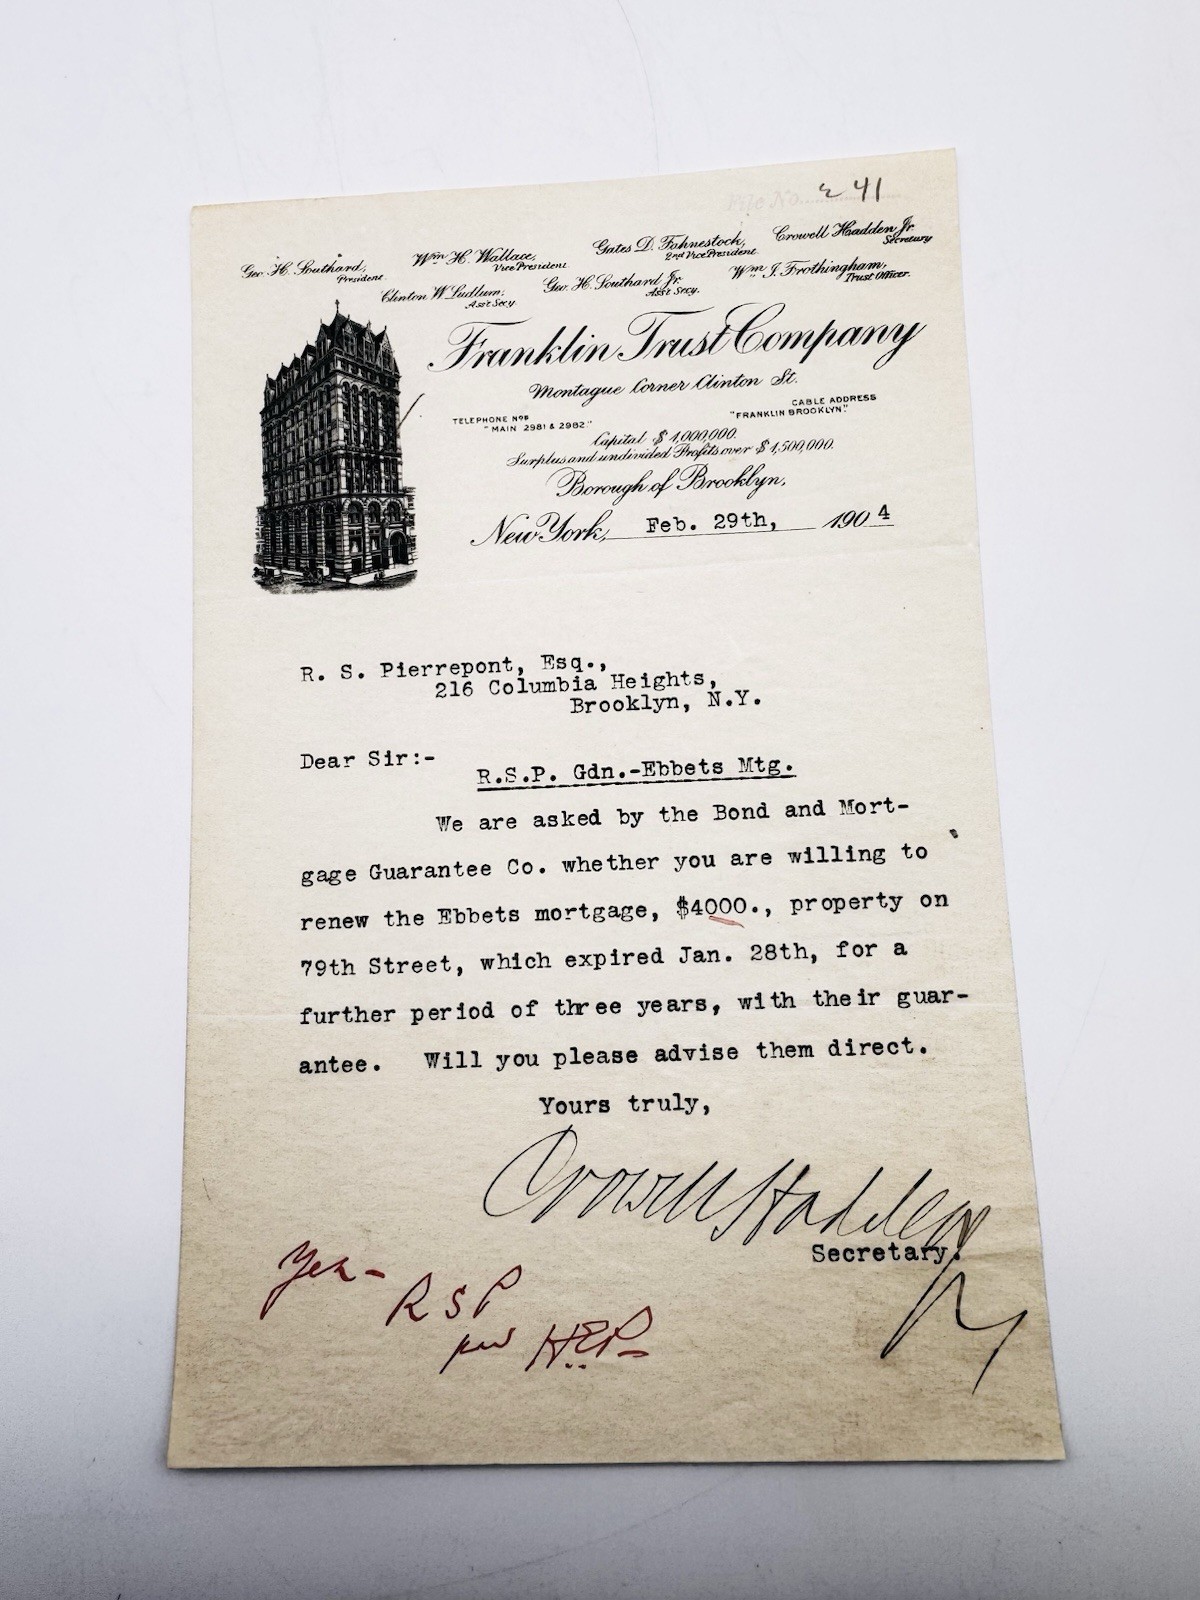 File No. 241
Geo. H. Southard,
President
Wm H. Wallace,
Vice President
Gates D. Fahnestock,
2nd Vice President
Crowell Hadden Jr.
Secretary
Clinton W. Ludlum,
Ass't Secy.
Geo. H. Southard Jr.
Ass't Secy.
Wm I. Frothingham,
Trust Officer.
Franklin Trust Company
Montague Corner Clinton St.
TELEPHONE NOS
"MAIN 2981 & 2982."
CABLE ADDRESS
"FRANKLIN BROOKLYN."
Capital $1,000,000.
Surplus and undivided Profits over $1,500,000.
Borough of Brooklyn,
New York, Feb. 29th, 1904
R. S. Pierrepont, Esq.,
216 Columbia Heights,
Brooklyn, N.Y.
Dear Sir:-
R.S.P. Gdn.-Ebbets Mtg.
We are asked by the Bond and Mort-
gage Guarantee Co. whether you are willing to
renew the Ebbets mortgage, $4000., property on
79th Street, which expired Jan. 28th, for a
further period of three years, with their guar-
antee. Will you please advise them direct.
Yours truly,
Crowell Hadden Jr
Secretary.
Yes-
RSP
per HEP-